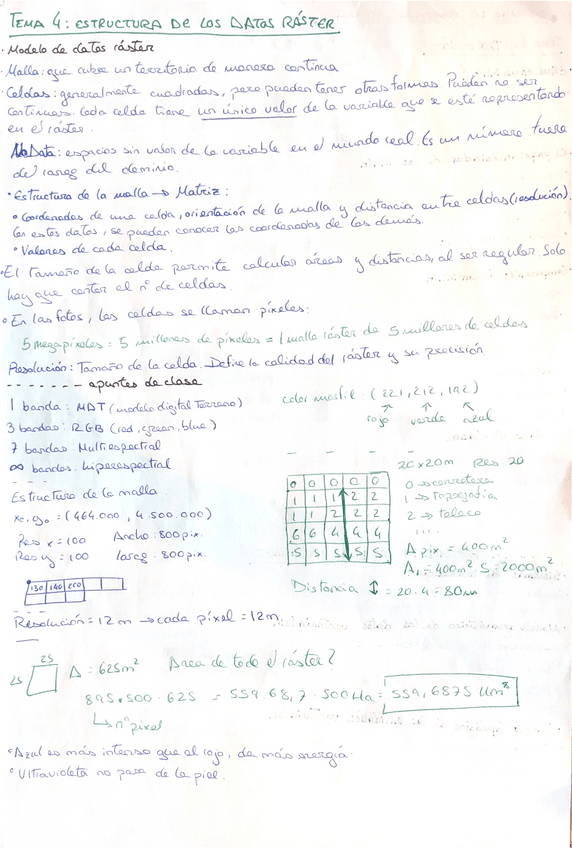 TEMA 4: ESTRUCTURA DE LOS DATOS RÁSTER
· Modelo de datos ráster
· Malla: que cubre un territorio de manera continua
· Celdas: generalmente cuadradas, pero pueden tener otras formas. Pueden no ser
continuas. Cada celda tiene un único valor de la variable que se esté representando
en el ráster.
NoData: espacios sin valor de la variable en el mundo real. Es un número fuera
del rango del dominio.
· Estructura de la malla → Matriz:
· Coordenadas de una celda, orientación de la malla y distancia entre celdas (resolución).
Con estos datos, se pueden conocer las coordenadas de las demás.
· Valores de cada celda.
· El tamaño de la celda permite calcular áreas y distancias, al ser regular. Solo
hay que contar el nº de celdas.
· En las fotos, las celdas se llaman píxeles:
5 megapíxeles = 5 millones de píxeles = 1 malla ráster de 5 millones de celdas
Resolución: Tamaño de la celda. Define la calidad del ráster y su precisión
- - - - - - - apuntes de clase
1 banda: MDT (modelo digital Terreno)
3 bandas: RGB (red, green, blue)
7 bandas: Multiespectral
∞ bandas: hiperespectral
color (221, 212, 192)
rojo verde azul
Estructura de la malla
x0, y0 = (464.000, 4.500.000)
Res x = 100 Ancho: 800 pix.
Res y = 100 largo: 800 pix.
130 140 200
0 0 0 0 0
1 1 1 2 2
1 1 2 2 2
6 6 4 4 4
5 5 5 5 5
20 x 20m Res 20
0 → carretera
1 → topografía
2 →
....
A pix. = 400m²
A₁ = 400m² · 5 = 2000m²
Distancia ↕ = 20 · 4 = 80m
Resolución = 12m → cada píxel = 12m
25
25
A = 625m² Area de todo el ráster?
895.500 · 625 = 559.68,7 · 500 Ha = 559,6875 Km²
↳ nº pixel
· Azul es más intenso que el rojo, da más energía
· Ultravioleta no pasa de la piel.